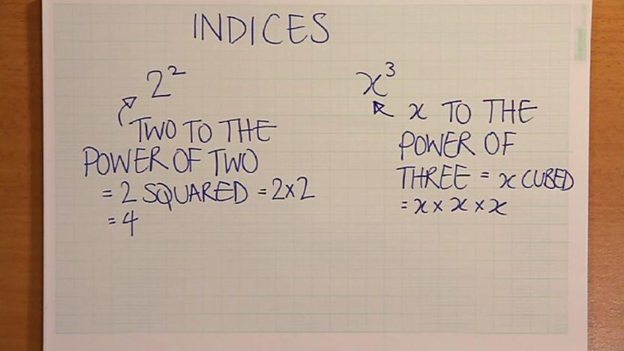 INDICES
2²
TWO TO THE
POWER OF TWO
= 2 SQUARED = 2×2
= 4
x³
x TO THE
POWER OF
THREE = x CUBED
= x × x × x